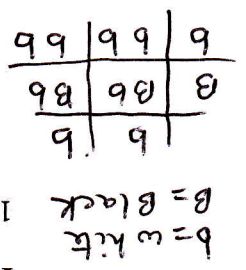 b = white
B = Black I
b b
B Bb Bb
b bb bb